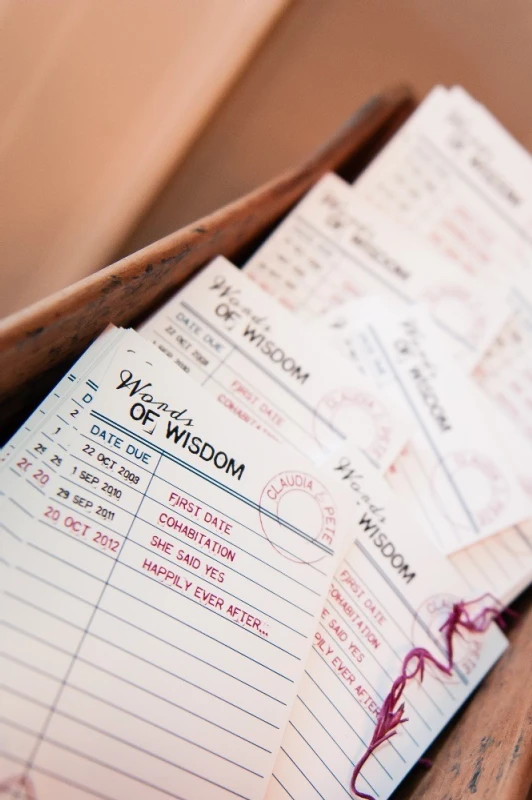 Words
OF WISDOM
DATE DUE
22 OCT 2008 FIRST DATE
1 SEP 2010 COHABITATION
29 SEP 2011 SHE SAID YES
20 OCT 2012 HAPPILY EVER AFTER...
CLAUDIA & PETE
Words
OF WISDOM
DATE DUE
22 OCT 2008 FIRST DATE
COHABITATION
CLAUDIA & PETE
Words
OF WISDOM
FIRST DATE
COHABITATION
SHE SAID YES
HAPPILY EVER AFTER
Words
OF WISDOM
OF WISDOM
OF WISDOM